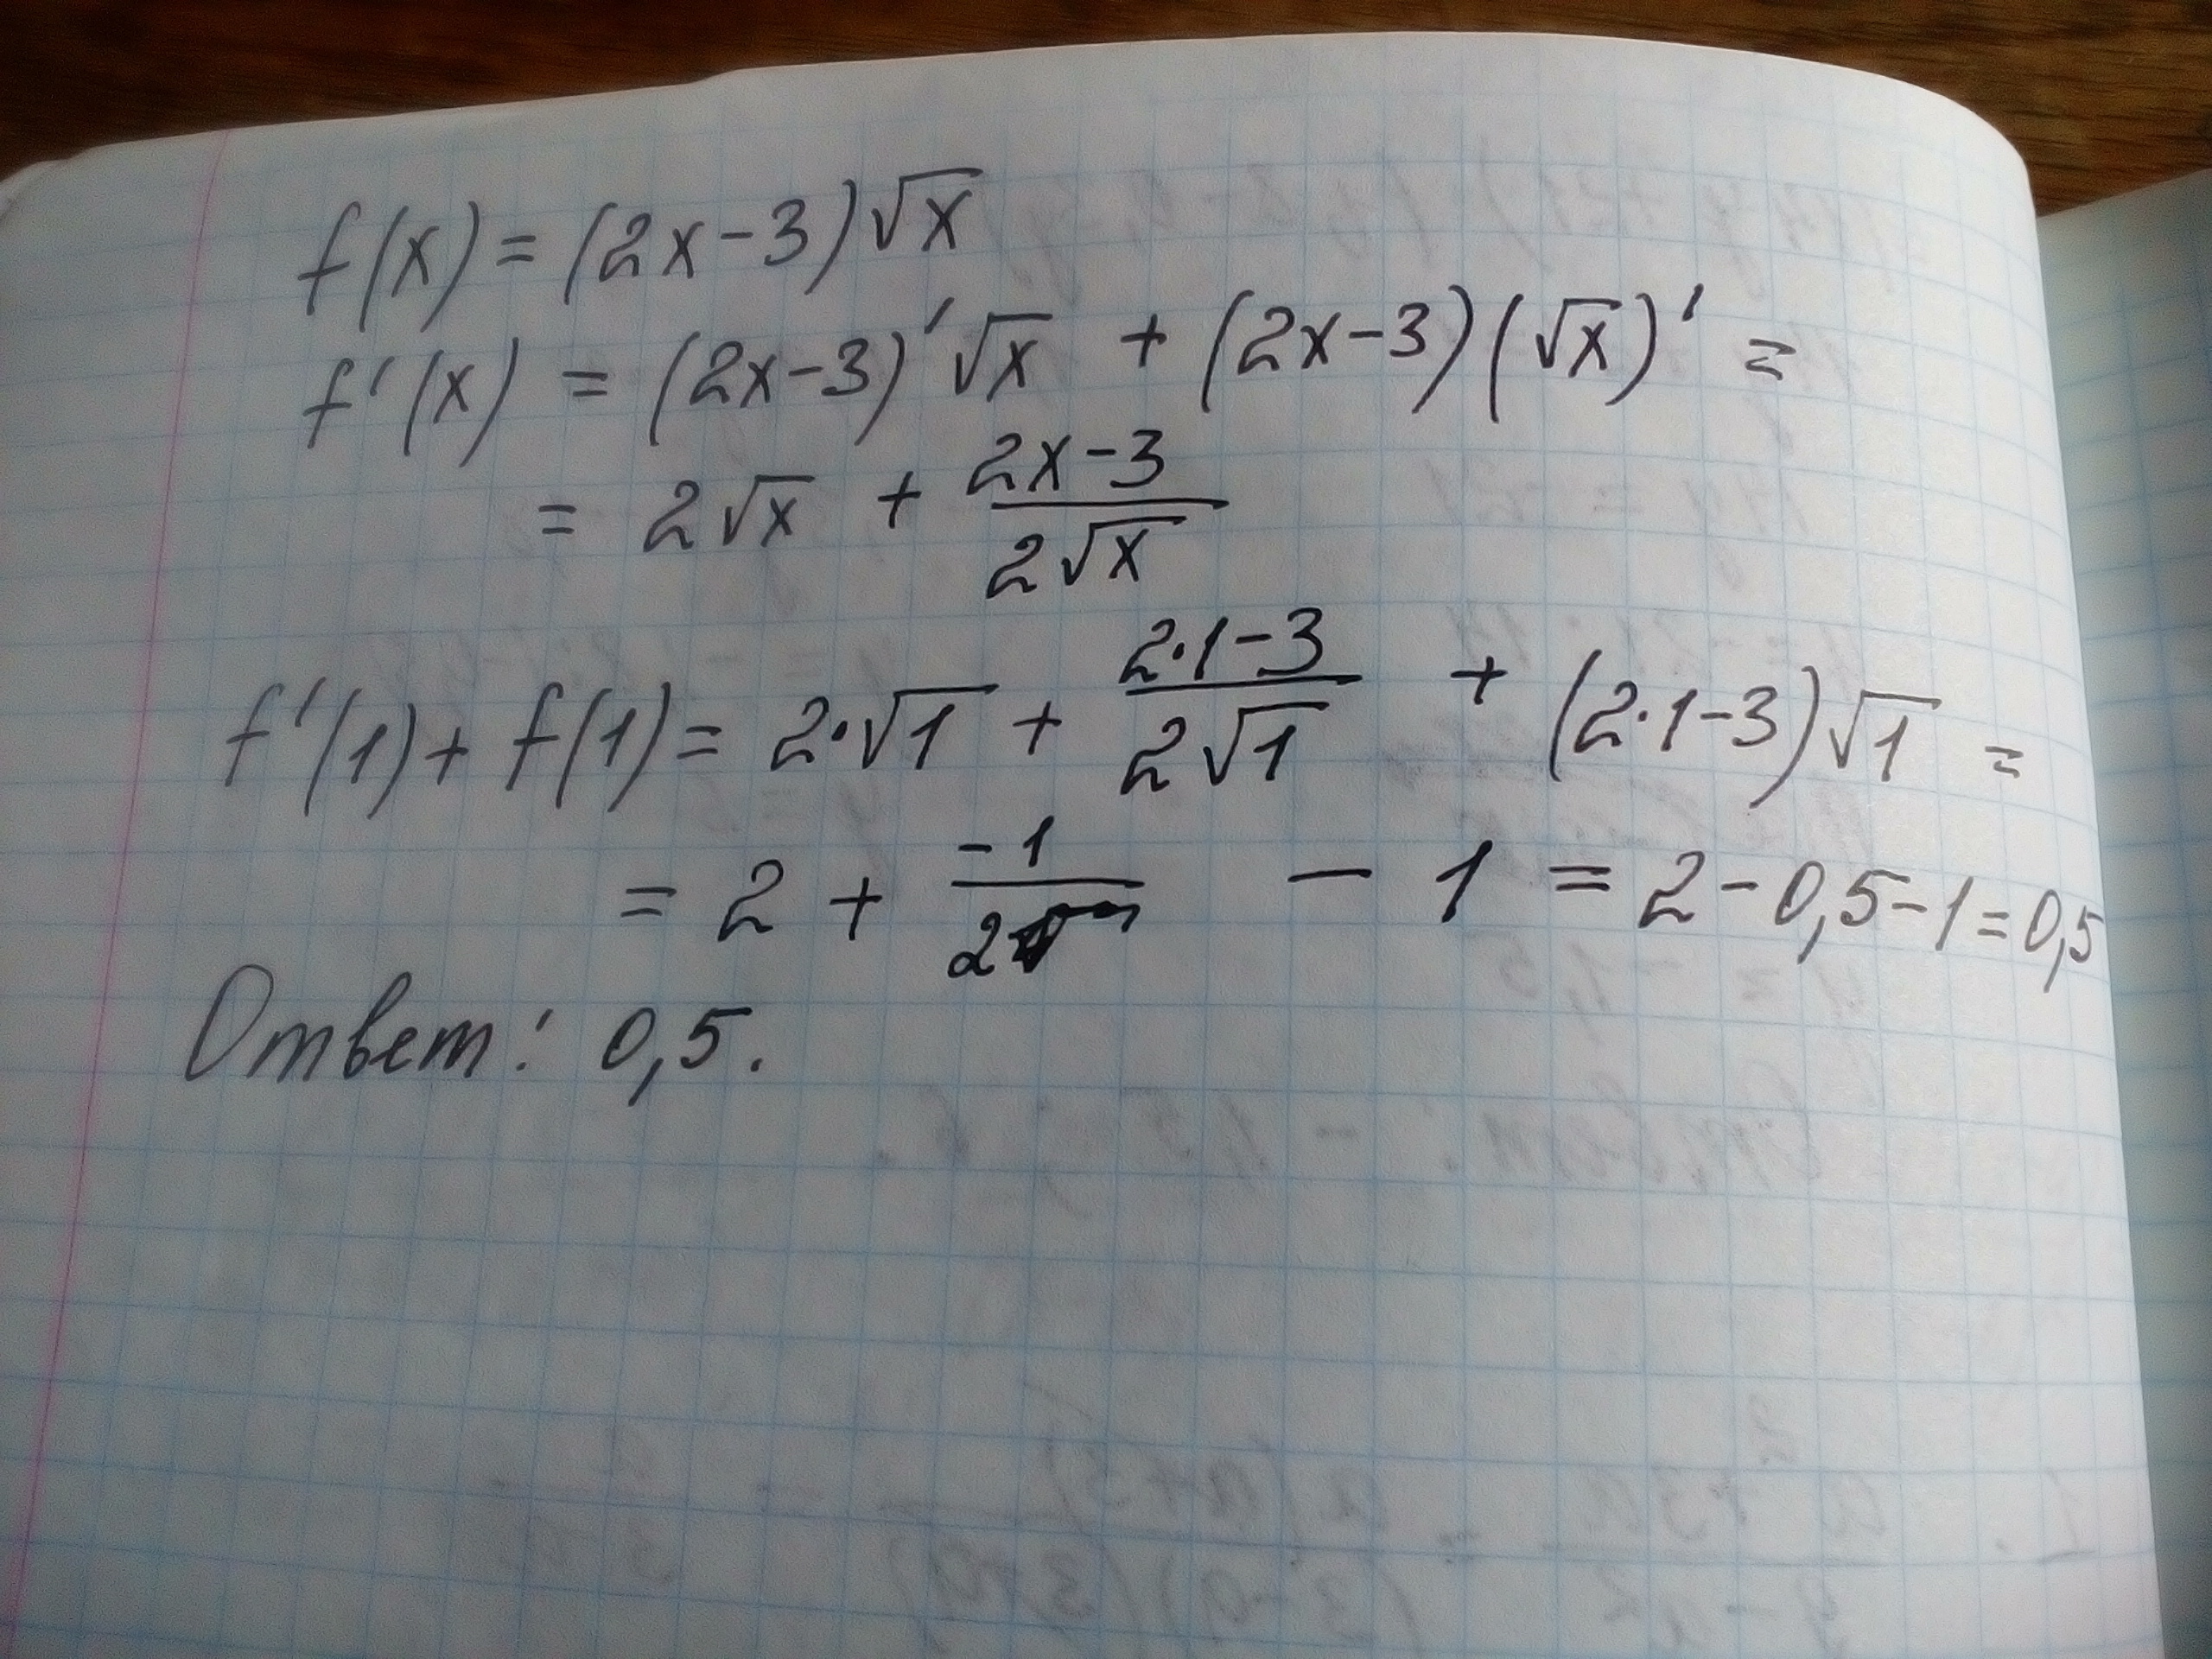 f(x) = (2x-3)√x
f'(x) = (2x-3)'√x + (2x-3)(√x)' =
= 2√x + (2x-3)/(2√x)
f'(1) + f(1) = 2·√1 + (2·1-3)/(2√1) + (2·1-3)√1 =
= 2 + (-1)/2 - 1 = 2-0,5-1=0,5
Ответ: 0,5.